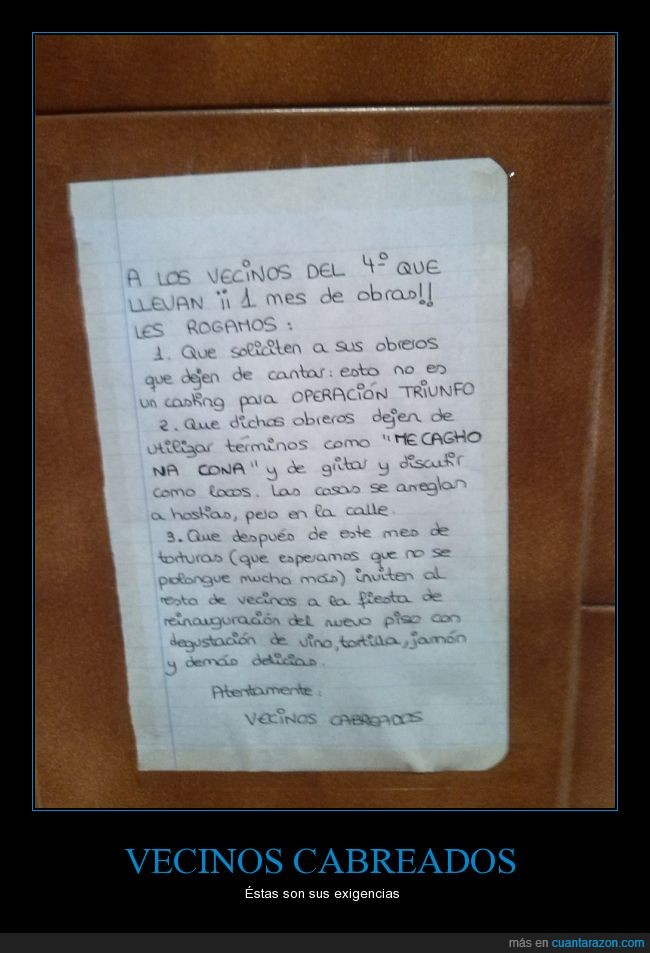 A LOS VECINOS DEL 4º QUE
LLEVAN ¡¡ 1 mes de obras!!
LES ROGAMOS:
1. Que soliciten a sus obreros
que dejen de cantar: esto no es
un casting para OPERACIÓN TRIUNFO
2. Que dichos obreros dejen de
utilizar términos como "ME CAGHO
NA CONA" y de gritar y discutir
como locos. Las cosas se arreglan
a hostias, pero en la calle.
3. Que después de este mes de
torturas (que esperamos que no se
prolongue mucho más) inviten al
resto de vecinos a la fiesta de
reinauguración del nuevo piso con
degustación de vino, tortilla, jamón
y demás delicias.
Atentamente:
VECINOS CABREADOS
VECINOS CABREADOS
Éstas son sus exigencias
más en cuantarazon.com